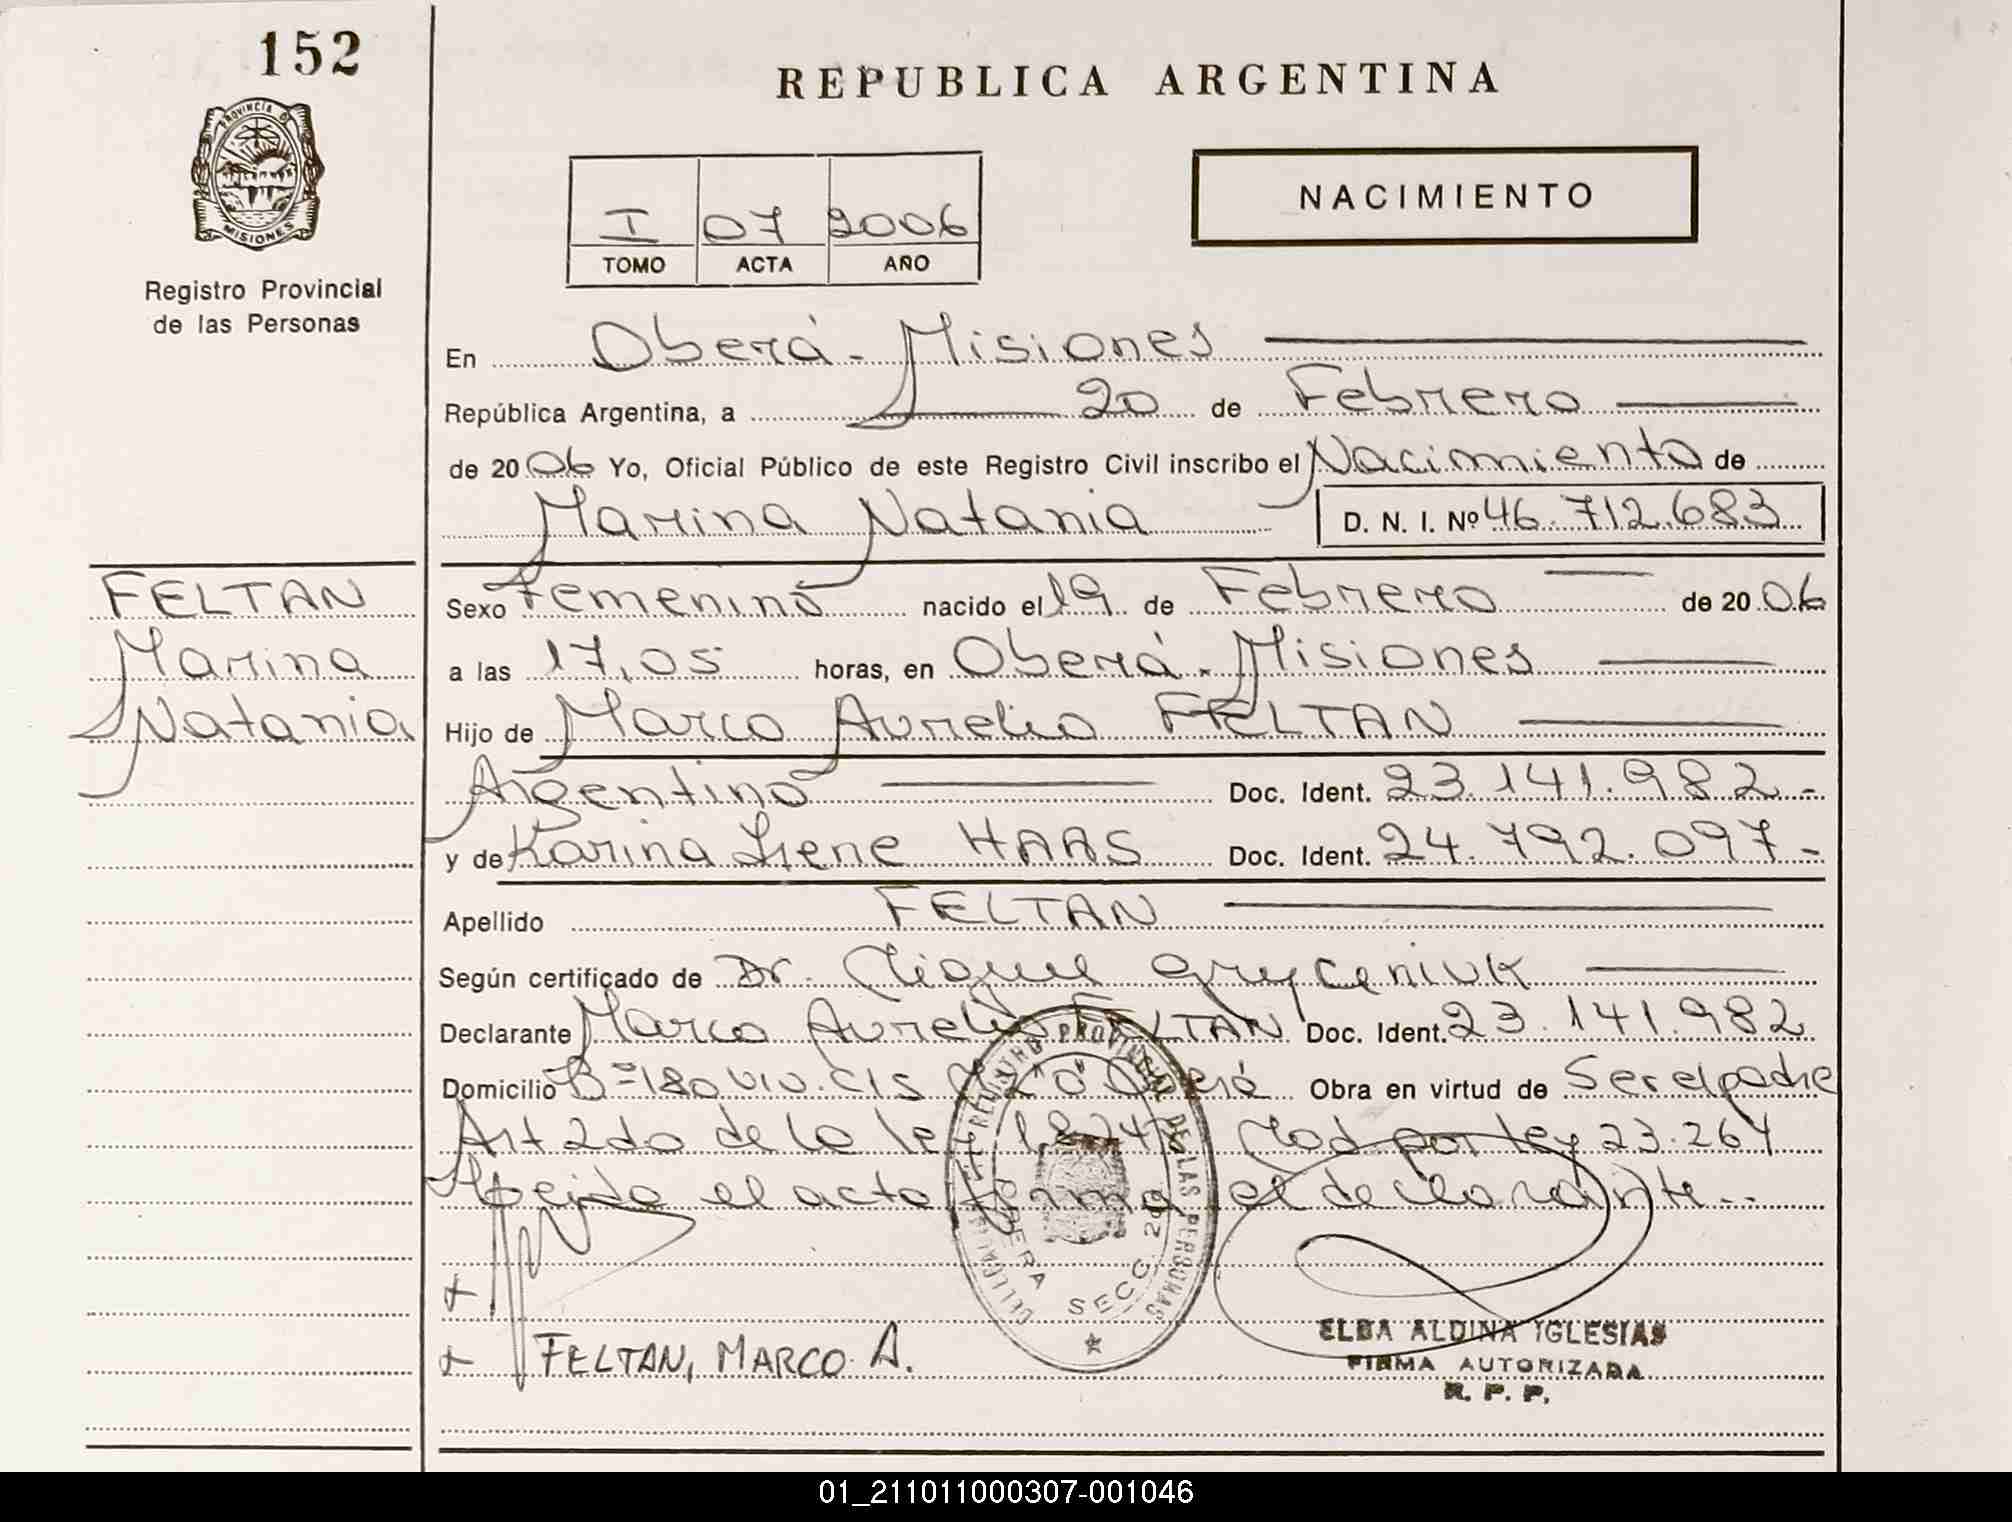 152
PROVINCIA D
MISIONES
Registro Provincial
de las Personas
REPUBLICA ARGENTINA
I 07 2006
TOMO ACTA AÑO
NACIMIENTO
En Oberá - Misiones
República Argentina, a 20 de Febrero
de 20 06 Yo, Oficial Público de este Registro Civil inscribo el Nacimiento de
Marina Natania D. N. I. Nº 46.712.683
FELTAN
Marina
Natania
Sexo Femenino nacido el 19 de Febrero de 20 06
a las 17,05 horas, en Oberá - Misiones
Hijo de Marco Aurelio FELTAN
Argentino Doc. Ident. 23.141.982 -
y de Karina Irene HAAS Doc. Ident. 24.792.097 -
Apellido FELTAN
Según certificado de Dr. Miguel Gryceniuk
Declarante Marco Aurelio FELTAN Doc. Ident. 23.141.982
Domicilio Bº 180 VIV. CIS Oberá Obra en virtud de Ser el padre
Art 2do de la ley 18248 Mod por ley 23.264
el acto firma el declarante --
REGISTRO PROVINCIAL DE LAS PERSONAS
OBERA SECC. 2da
+
+ FELTAN, MARCO A.
ELBA ALDINA IGLESIAS
FIRMA AUTORIZADA
R. P. P.
01_211011000307-001046